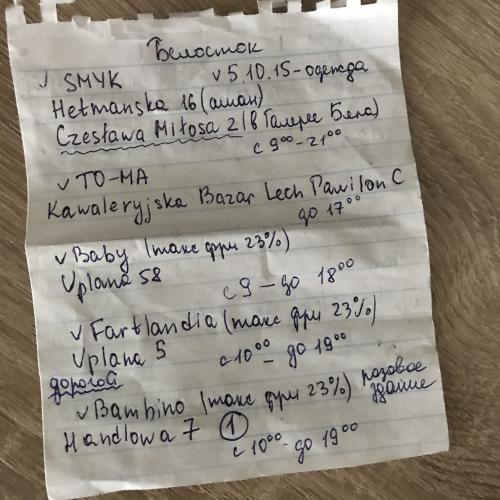 Белосток
✓ SMYK ✓ 5.10.15 - одежда
Hetmanska 16 (ашан)
Czesława Miłosa 2 (в Галерее Бела)
с 9⁰⁰ - 21⁰⁰
✓ TO-MA
Kawaleryjska Bazar Lech Pawilon C
до 17⁰⁰
✓ Baby (такс фри 23%)
Uplana 58
с 9 - до 18⁰⁰
✓ Fartlandia (такс фри 23%)
Uplana 5
с 10⁰⁰ - до 19⁰⁰
дорогой
✓ Bambino (такс фри 23%) розовое здание
Handlowa 7 ①
с 10⁰⁰ - до 19⁰⁰